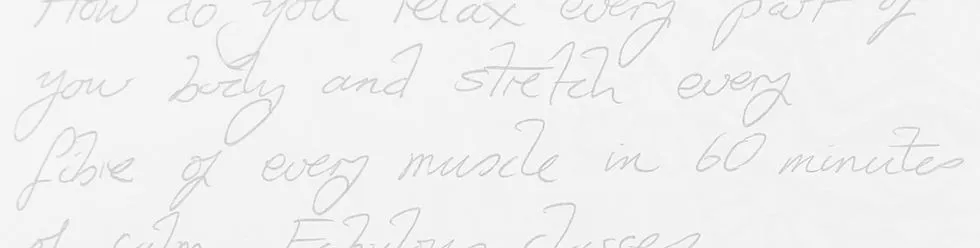 How do you relax every part of
you body and stretch every
fibre of every muscle in 60 minutes
of calm. Fabulous classes